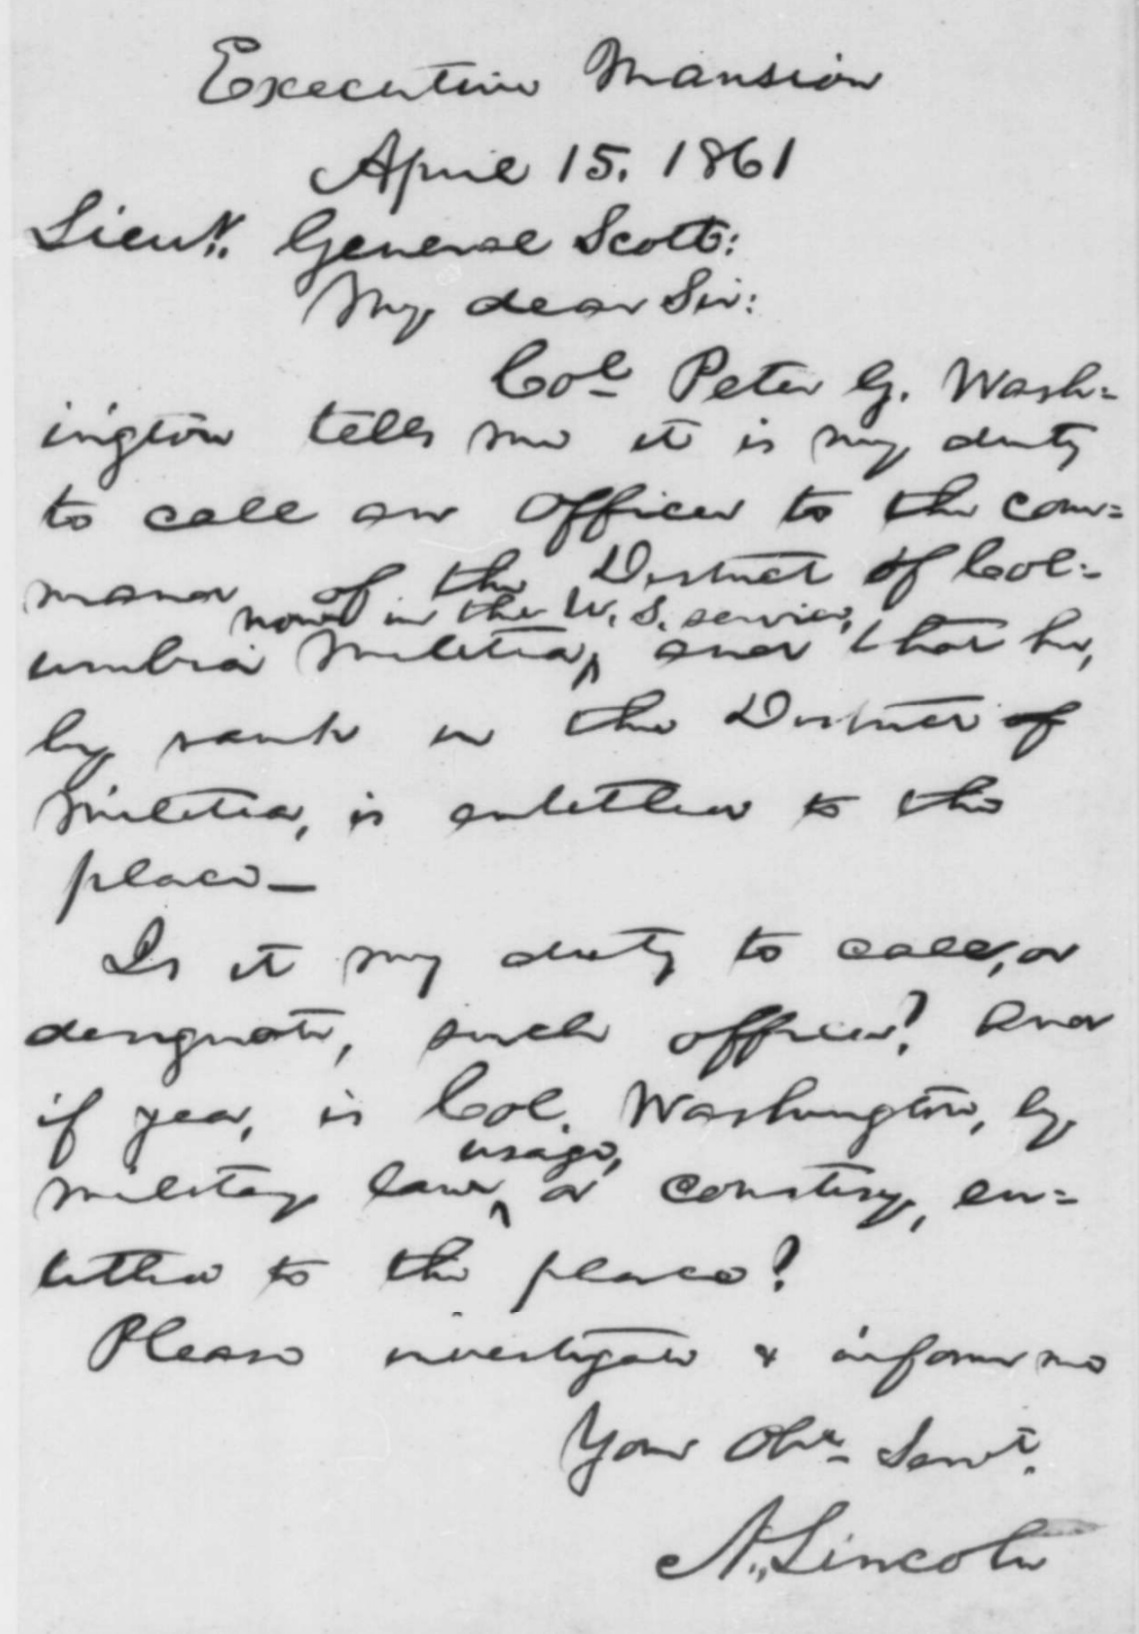 Executive Mansion
April 15. 1861
Lieut. General Scott:
My dear Sir:
Col. Peter G. Wash=
ington tells me it is my duty
to call an officer to the com=
mand of the District of Col=
now in the U. S. service,
umbia Militia, and that he,
by rank in the District of
Militia, is entitled to the
place—
Is it my duty to call, or
designate, such officer? And
if yea, is Col. Washington, by
usage,
military law, or courtesy, en=
titled to the place?
Please investigate & inform me
Your Obt. Servt.
A. Lincoln